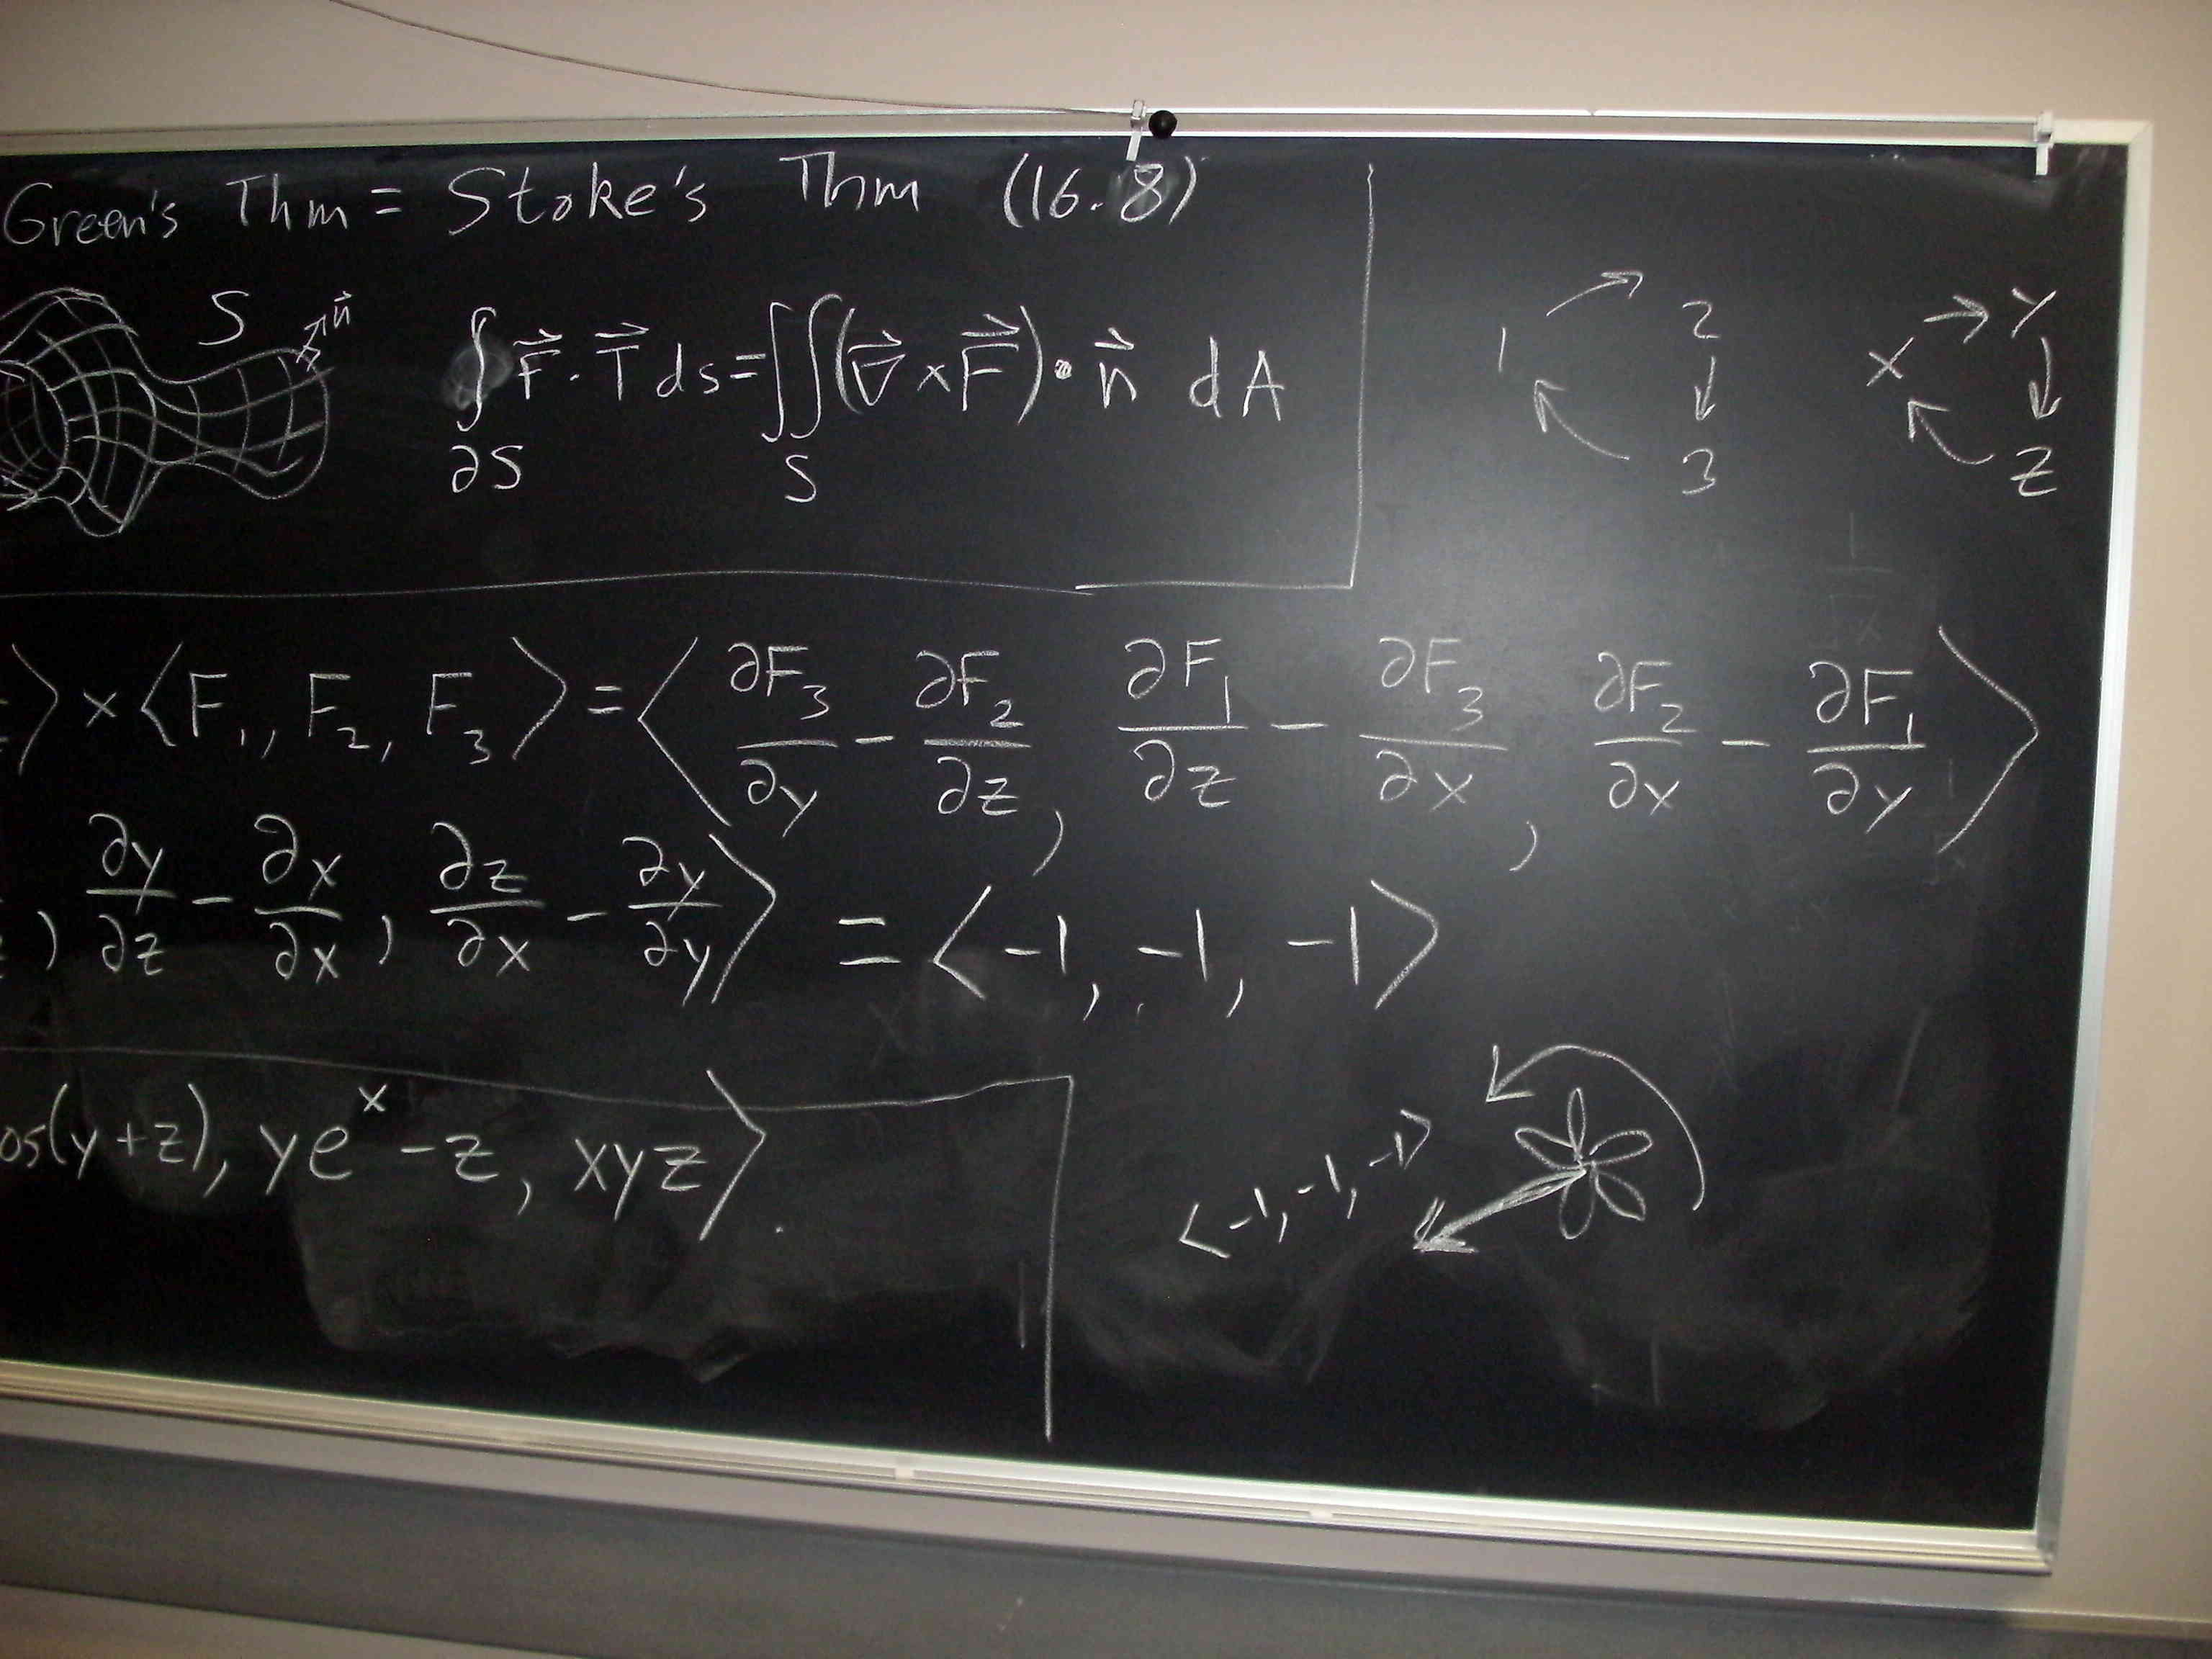 Green's Thm = Stoke's Thm (16.8)
S n⃗
∮ F⃗ · T⃗ ds = ∬ (∇⃗ × F⃗) · n⃗ dA
∂S S
1 2 3
X Y Z
⟩ × ⟨F₁, F₂, F₃⟩ = ⟨∂F₃/∂y − ∂F₂/∂z, ∂F₁/∂z − ∂F₃/∂x, ∂F₂/∂x − ∂F₁/∂y⟩
, ∂y/∂z − ∂x/∂x, ∂z/∂x − ∂y/∂y⟩ = ⟨-1, -1, -1⟩
os(y+z), ye^x − z, xyz⟩.
⟨-1, -1, -1⟩